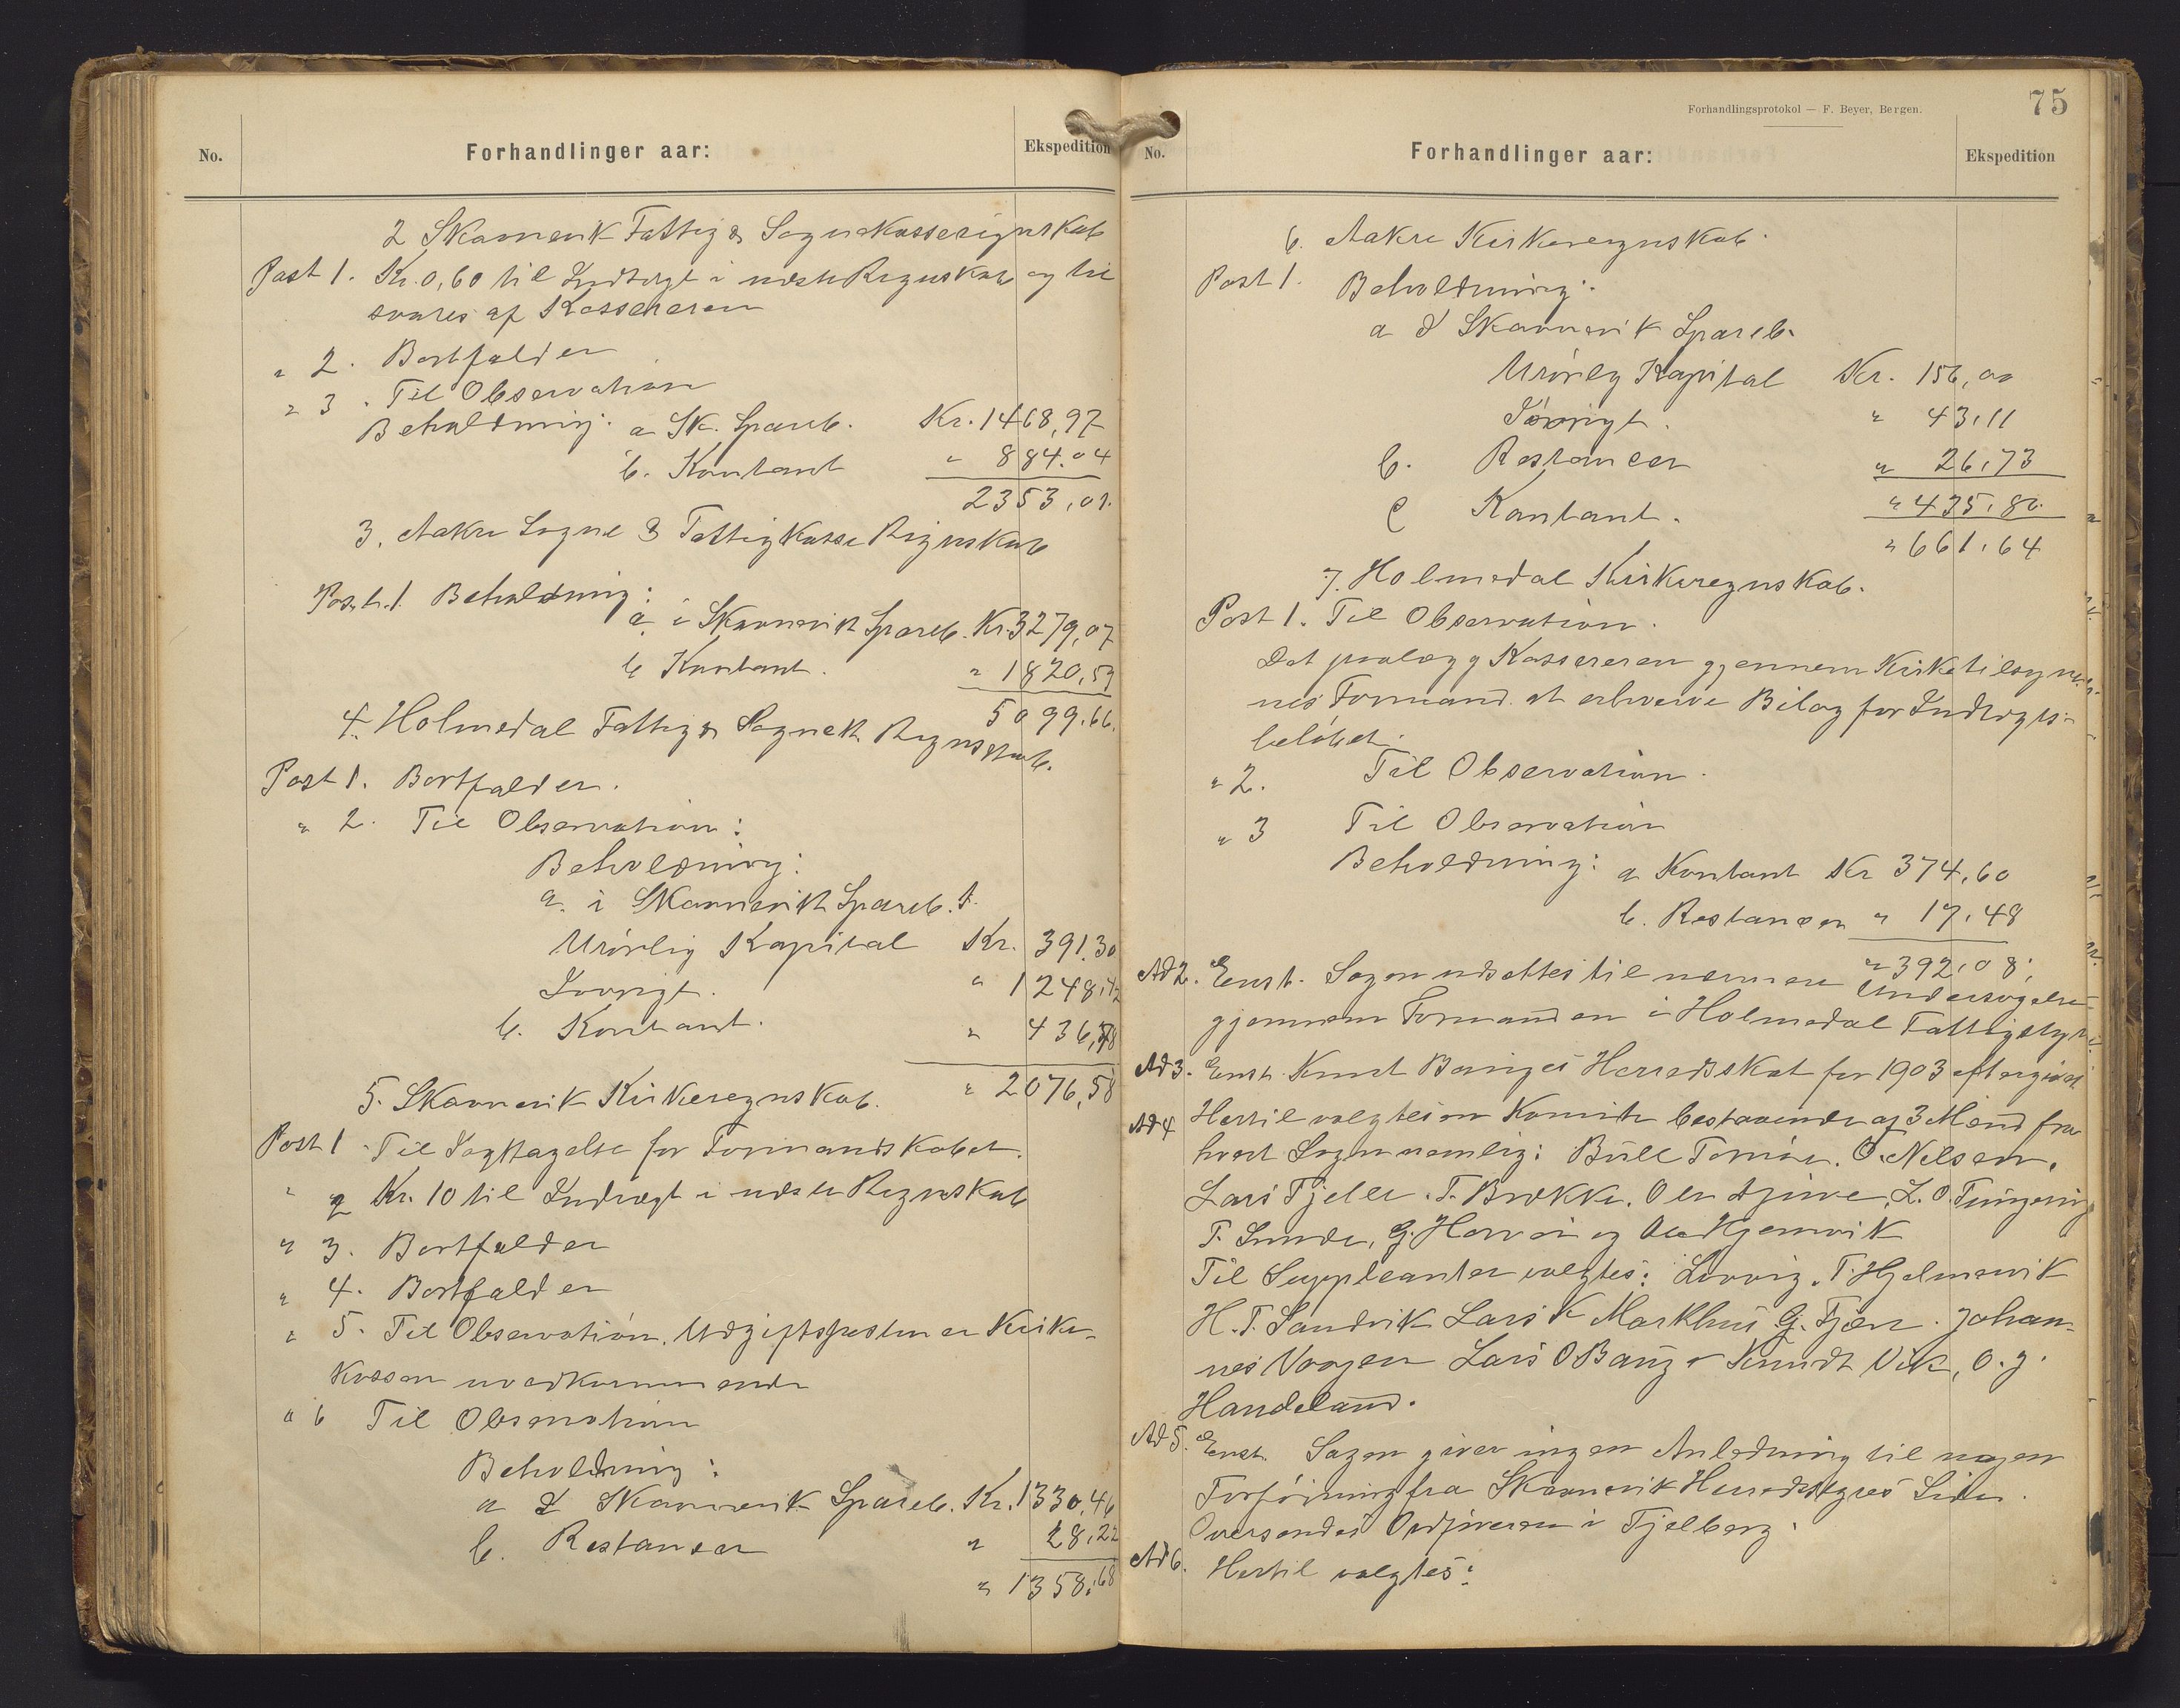 No.
Forhandlinger aar:
Ekspedition
2 Skaanevik Fattig & Sognekasseregnskab
Post 1. Kr. 0,60 til Indtægt i næste Regnskab og til
svares af Kassereren
" 2. Bortfalder
" 3. Til Observation
Beholdning: a Sk. Spareb. Kr. 1468,97
b. Kontant " 884.04
2353,01.
3. Aakre Sogne & Fattigkasse Regnskab
Post. 1. Beholdning:
a. i Skaanevik Spareb. Kr 3279,07
b Kontant. " 1820,59
5099.66.
4. Holmedal Fattig & Sognek. Regnskab.
Post 1. Bortfalder.
" 2. Til Observation:
Beholdning:
a. i Skaanevik Spareb.
Urörlig Kapital Kr. 391.30
Iövrigt. " 1248,42
b. Kontant. " 436,
" 2076,58
5. Skaanevik Kirkeregnskab.
Post 1 Til Iagttagelse for Formandskabet.
" 2 Kr. 10 til Indtægt i næste Regnskab
" 3. Bortfalder
" 4. Bortfalder
" 5. Til Observation. Udgiftsposten er Kirke-
kassen uvedkommende
" 6 Til Observation
Beholdning:
a I Skaanevik Spareb. Kr. 1330,46
b. Restanser " 28,22
" 1358,68
Forhandlingsprotokol — F. Beyer, Bergen.
75
No.
Forhandlinger aar:
Ekspedition
6. Aakre Kirkeregnskab.
Post 1. Beholdning:
a I Skaanevik Spareb.
Urörlig Kapital Kr. 156,00
Iövrigt. " 43,11
b. Restancer " 26,73
c Kontant. " 435,80.
" 661,64
7. Holmedal Kirkeregnskab.
Post 1. Til Observation.
Det paalægg Kassereren gjennem Kirketilsy-
nes Formand at erhverve Bilag for Indtægts-
belöbet.
" 2. Til Observation.
" 3 Til Observation
Beholdning: a Kontant Kr 374,60
b. Restanser " 17,48
" 392,08.
Ad 2. Enst. Sagen udsættes til nærmere Undersögelse
gjennem Formanden i Holmedal Fattigstyre.
Ad 3. Enst. Knut Banges Herredsskat for 1903 eftergives
Ad 4 Hertil valgtes en Komite bestaaende af 3 Mænd fra
hvert Sogn nemlig: Bull Tornöe. O. Nelsen.
Lars Fjelle. T. Brekke. Ole Apine. L. O. Tungesvig
T. Sunde, G. Hervei og Ole Kjemvik
Til Suppleanter valgtes: Lovvig. T. Hjelmevik
H. T. Sandvik Lars K Markhus G. Fjære. Johan-
nes Vaagen Lars O Bauge Knudt Vik, O. J.
Handeland.
Ad 5. Enst. Sagen giver ingen Anledning til nogen
Forföining fra Skaanevik Herredsstyres Side.
Oversendes Ordföreren i Fjelberg.
Ad 6. Hertil valgtes: